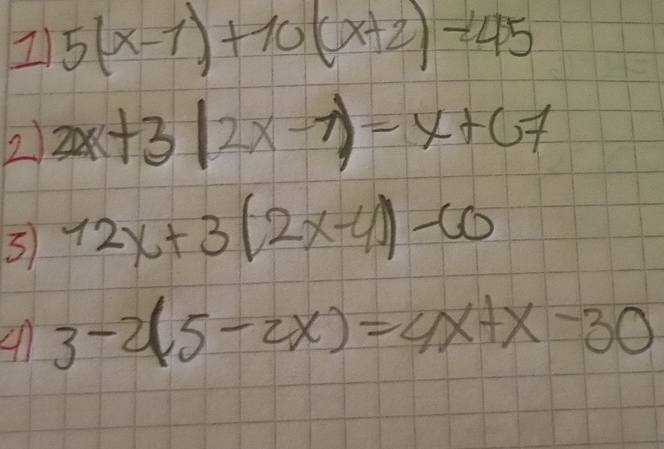 1) 5(x-1)+10(x+2)=45
2) 2x+3(2x-1)=x+67
3) 12x+3(2x-4)=60
4) 3-2(5-2x)=4x+x-30